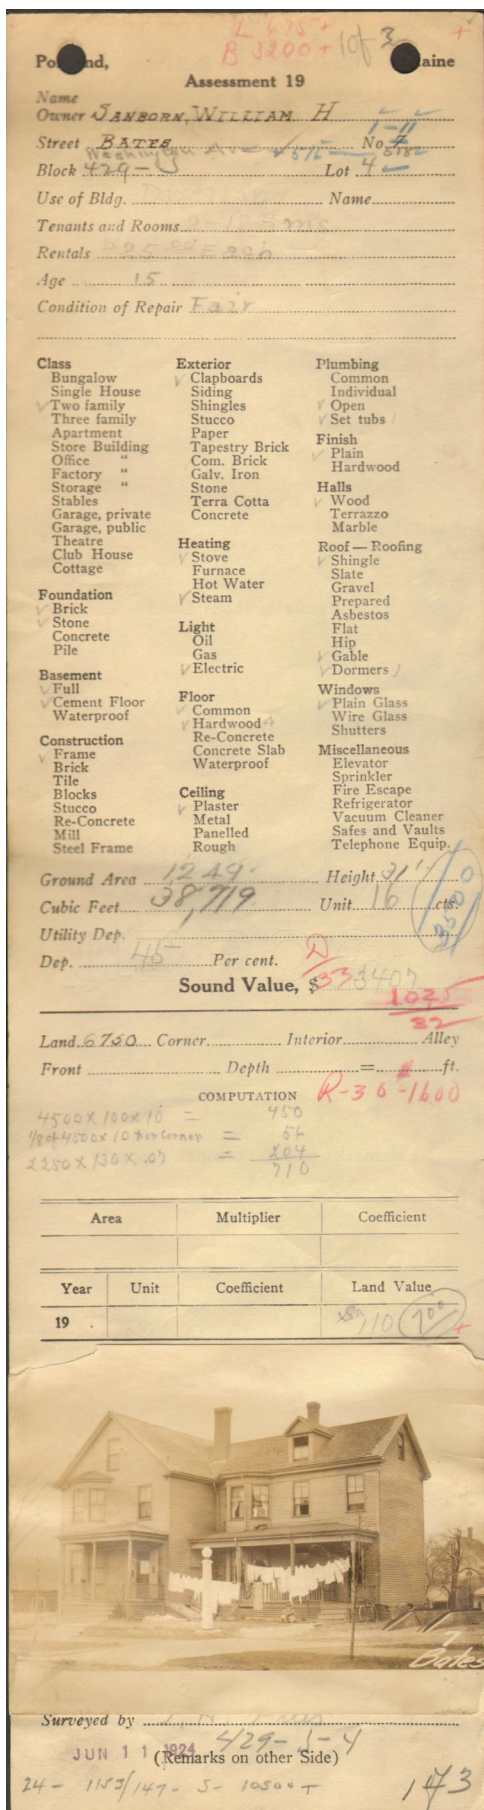 L 675+
B 3200+ 1 of 3 +
Po nd, aine
Assessment 19
Name
Owner SANBORN, WILLIAM H
1-11
Street BATES No. 7
Washington Ave 516 518
Block 429-J Lot 4
Use of Bldg. Name
Tenants and Rooms
Rentals 25 00 Each
Age 15
Condition of Repair Fair
Class
Bungalow
Single House
✓ Two family
Three family
Apartment
Store Building
Office "
Factory "
Storage "
Stables
Garage, private
Garage, public
Theatre
Club House
Cottage
Foundation
✓ Brick
✓ Stone
Concrete
Pile
Basement
✓ Full
✓ Cement Floor
Waterproof
Construction
✓ Frame
Brick
Tile
Blocks
Stucco
Re-Concrete
Mill
Steel Frame
Exterior
✓ Clapboards
Siding
Shingles
Stucco
Paper
Tapestry Brick
Com. Brick
Galv. Iron
Stone
Terra Cotta
Concrete
Heating
✓ Stove
Furnace
Hot Water
✓ Steam
Light
Oil
Gas
✓ Electric
Floor
✓ Common
✓ Hardwood 4
Re-Concrete
Concrete Slab
Waterproof
Ceiling
✓ Plaster
Metal
Panelled
Rough
Plumbing
Common
Individual
✓ Open
✓ Set tubs 1
Finish
✓ Plain
Hardwood
Halls
✓ Wood
Terrazzo
Marble
Roof — Roofing
✓ Shingle
Slate
Gravel
Prepared
Asbestos
Flat
Hip
✓ Gable
✓ Dormers 1
Windows
✓ Plain Glass
Wire Glass
Shutters
Miscellaneous
Elevator
Sprinkler
Fire Escape
Refrigerator
Vacuum Cleaner
Safes and Vaults
Telephone Equip.
Ground Area 1249 Height 31'
Cubic Feet 38,719 Unit 16 cts.
Utility Dep.
Dep. 45 Per cent.
D/33
Sound Value, $ 3407
1025
22
Land 6750 Corner Interior Alley
Front Depth = ft.
COMPUTATION R-30-1600
4500 X 100 X 10 = 450
1/8 of 4500 X 10 for corner = 56
2250 X 130 X .07 = 204
710
Area Multiplier Coefficient
Year Unit Coefficient Land Value
19 $710 700 +
7
Bates
Surveyed by
429-J-4
JUN 11 1924 (Remarks on other Side)
24- 1153/147- S- 10500+ 173